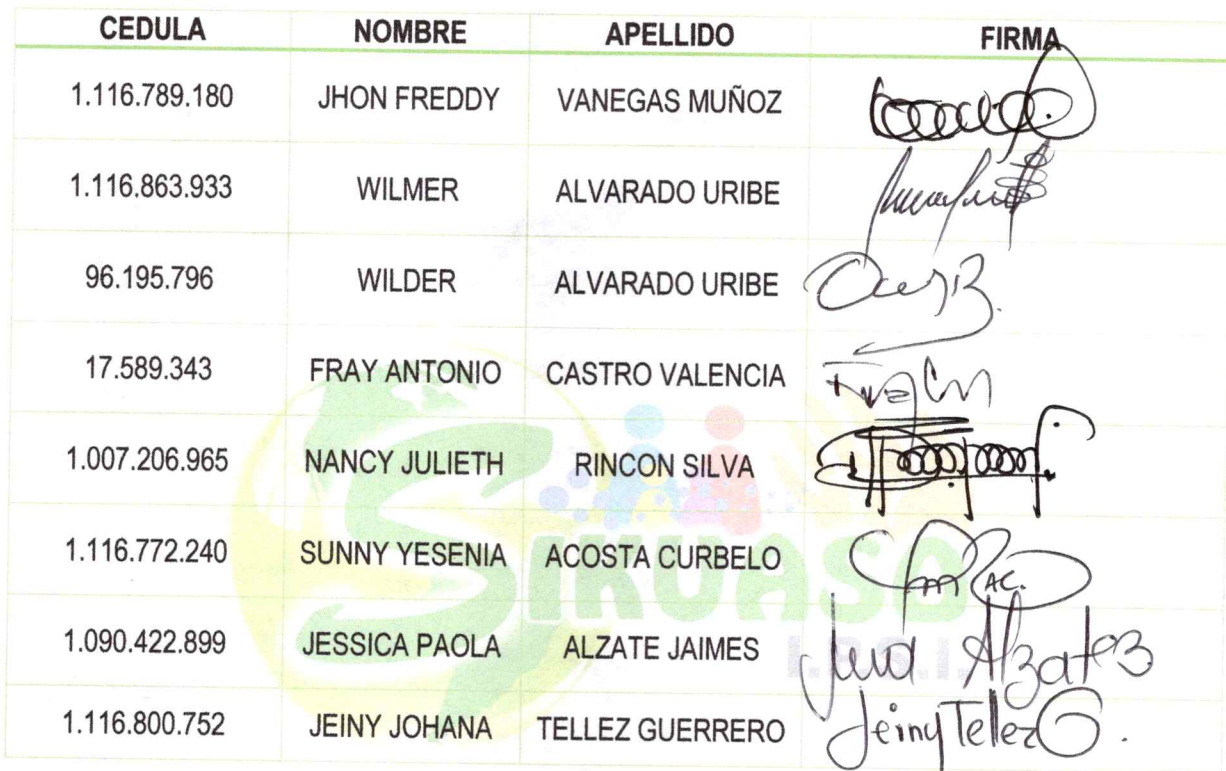 CEDULA NOMBRE APELLIDO FIRMA
1.116.789.180 JHON FREDDY VANEGAS MUÑOZ
1.116.863.933 WILMER ALVARADO URIBE
96.195.796 WILDER ALVARADO URIBE
17.589.343 FRAY ANTONIO CASTRO VALENCIA
1.007.206.965 NANCY JULIETH RINCON SILVA
1.116.772.240 SUNNY YESENIA ACOSTA CURBELO AC.
SIKUASO
1.090.422.899 JESSICA PAOLA ALZATE JAIMES Alzate
I.P.S.I.
1.116.800.752 JEINY JOHANA TELLEZ GUERRERO Jeiny Tellez G.